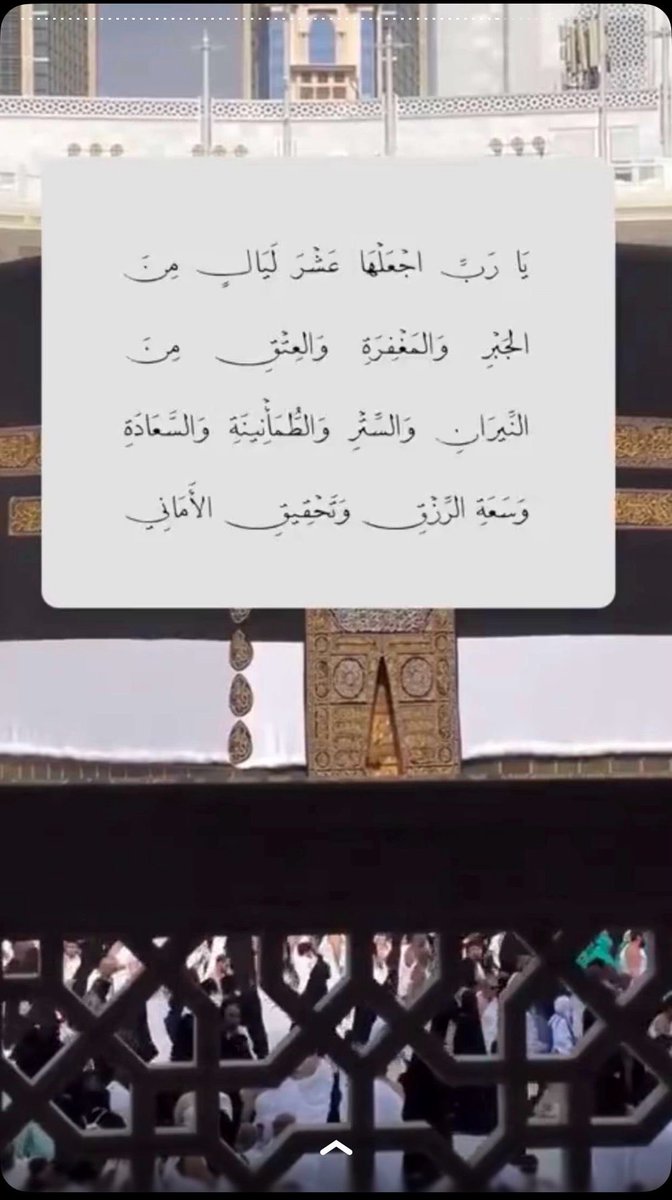 يَا رَبِّ اجْعَلْهَا عَشْرَ لَيَالٍ مِنَ
الجَبْرِ وَالمَغْفِرَةِ وَالعِتْقِ مِنَ
النِّيرَانِ وَالسِّتْرِ وَالطُّمَأْنِينَةِ وَالسَّعَادَةِ
وَسَعَةِ الرِّزْقِ وَتَحْقِيقِ الأَمَانِي